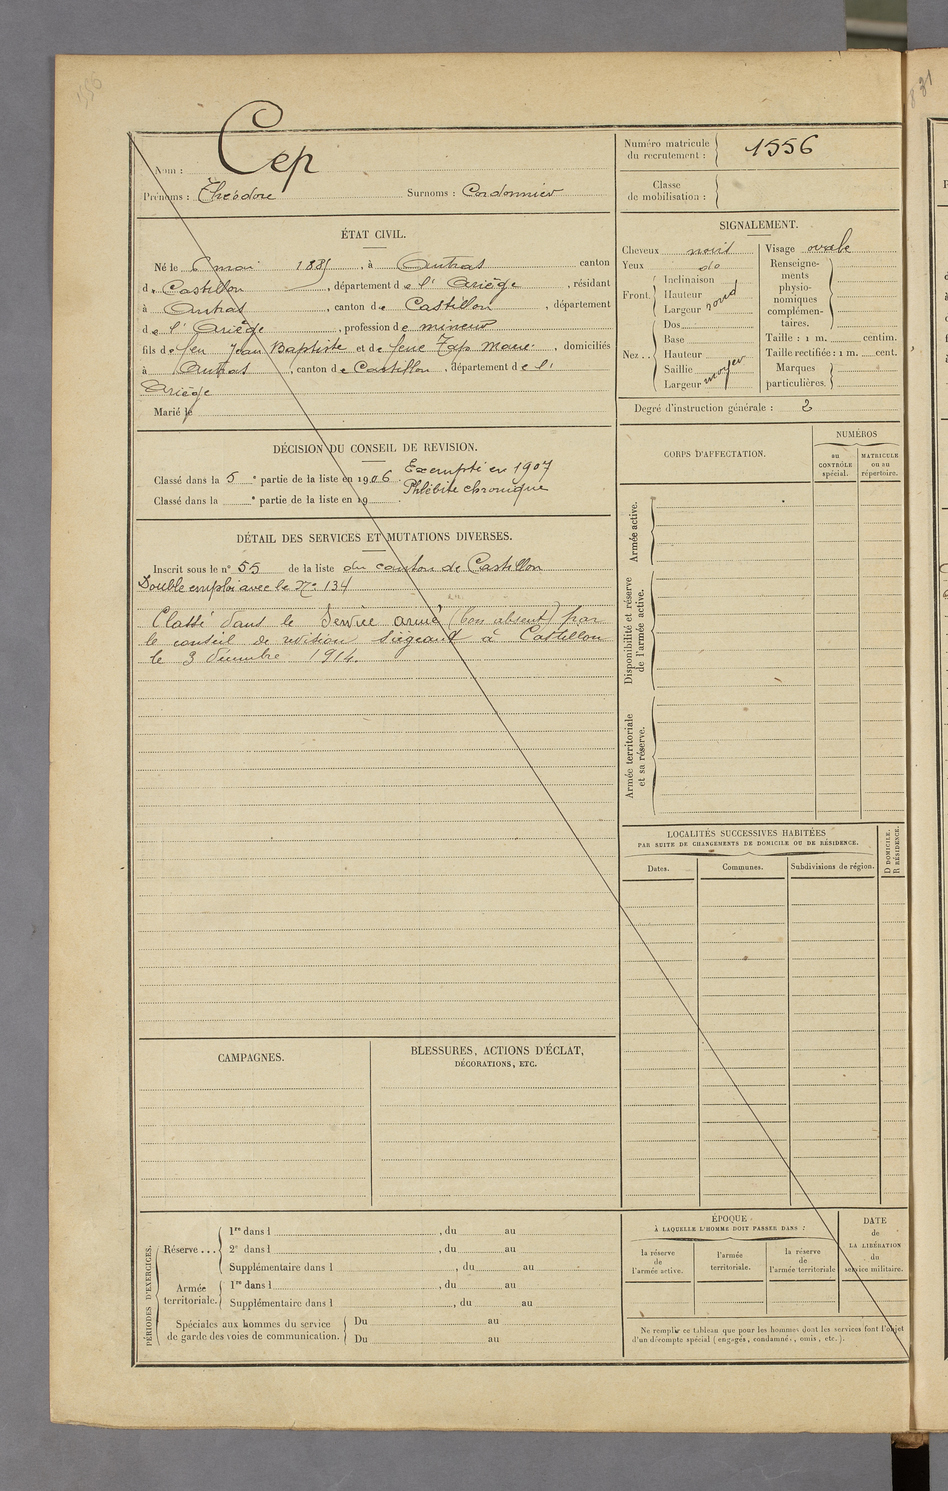 1556
831
Cep
Nom :
Prénoms : Théodore Surnoms : Cordonnier
Numéro matricule
du recrutement : 1556
Classe
de mobilisation :
ÉTAT CIVIL.
Né le 6 mai 1885, à Antras canton
de Castillon, département de l'Ariège, résidant
à Antras, canton de Castillon, département
de l'Ariège, profession de mineur
fils de feu Jean Baptiste et de feue Marie, domiciliés
à Antras, canton de Castillon, département de l'
Ariège
Marié le
SIGNALEMENT.
Cheveux noirs
Yeux do
Front Inclinaison
Hauteur rond
Largeur
Nez Dos
Base
Hauteur
Saillie moyen
Largeur
Visage ovale
Renseigne-
ments
physio-
nomiques
complémen-
taires.
Taille : 1 m. centim.
Taille rectifiée : 1 m. cent.
Marques
particulières.
Degré d'instruction générale : 2
DÉCISION DU CONSEIL DE REVISION.
Classé dans la 5e partie de la liste en 1906. Exempté en 1907
Classé dans la e partie de la liste en 19 . Phlébite chronique
DÉTAIL DES SERVICES ET MUTATIONS DIVERSES.
Inscrit sous le n° 55 de la liste du canton de Castillon
Double emploi avec le No 134
Classé dans le Service armé (bon absent) par
le conseil de révision siégeant à Castillon
le 3 décembre 1914.
CORPS D'AFFECTATION.
NUMÉROS
au
CONTRÔLE
spécial.
MATRICULE
ou au
répertoire.
Armée active.
Disponibilité et réserve
de l'armée active.
Armée territoriale
et sa réserve.
LOCALITÉS SUCCESSIVES HABITÉES
PAR SUITE DE CHANGEMENTS DE DOMICILE OU DE RÉSIDENCE.
Dates.
Communes.
Subdivisions de région.
D DOMICILE.
R RÉSIDENCE.
CAMPAGNES.
BLESSURES, ACTIONS D'ÉCLAT,
DÉCORATIONS, ETC.
PÉRIODES D'EXERCICES.
Réserve... 1re dans l , du au
2e dans l , du au
Supplémentaire dans l , du au
Armée
territoriale. 1re dans l , du au
Supplémentaire dans l , du au
Spéciales aux hommes du service
de garde des voies de communication.
Du au
Du au
ÉPOQUE
À LAQUELLE L'HOMME DOIT PASSER DANS :
la réserve
de
l'armée active.
l'armée
territoriale.
la réserve
de
l'armée territoriale
DATE
de
LA LIBÉRATION
du
service militaire.
Ne remplir ce tableau que pour les hommes dont les services font l'objet
d'un décompte spécial (engagés, condamnés, omis, etc.).